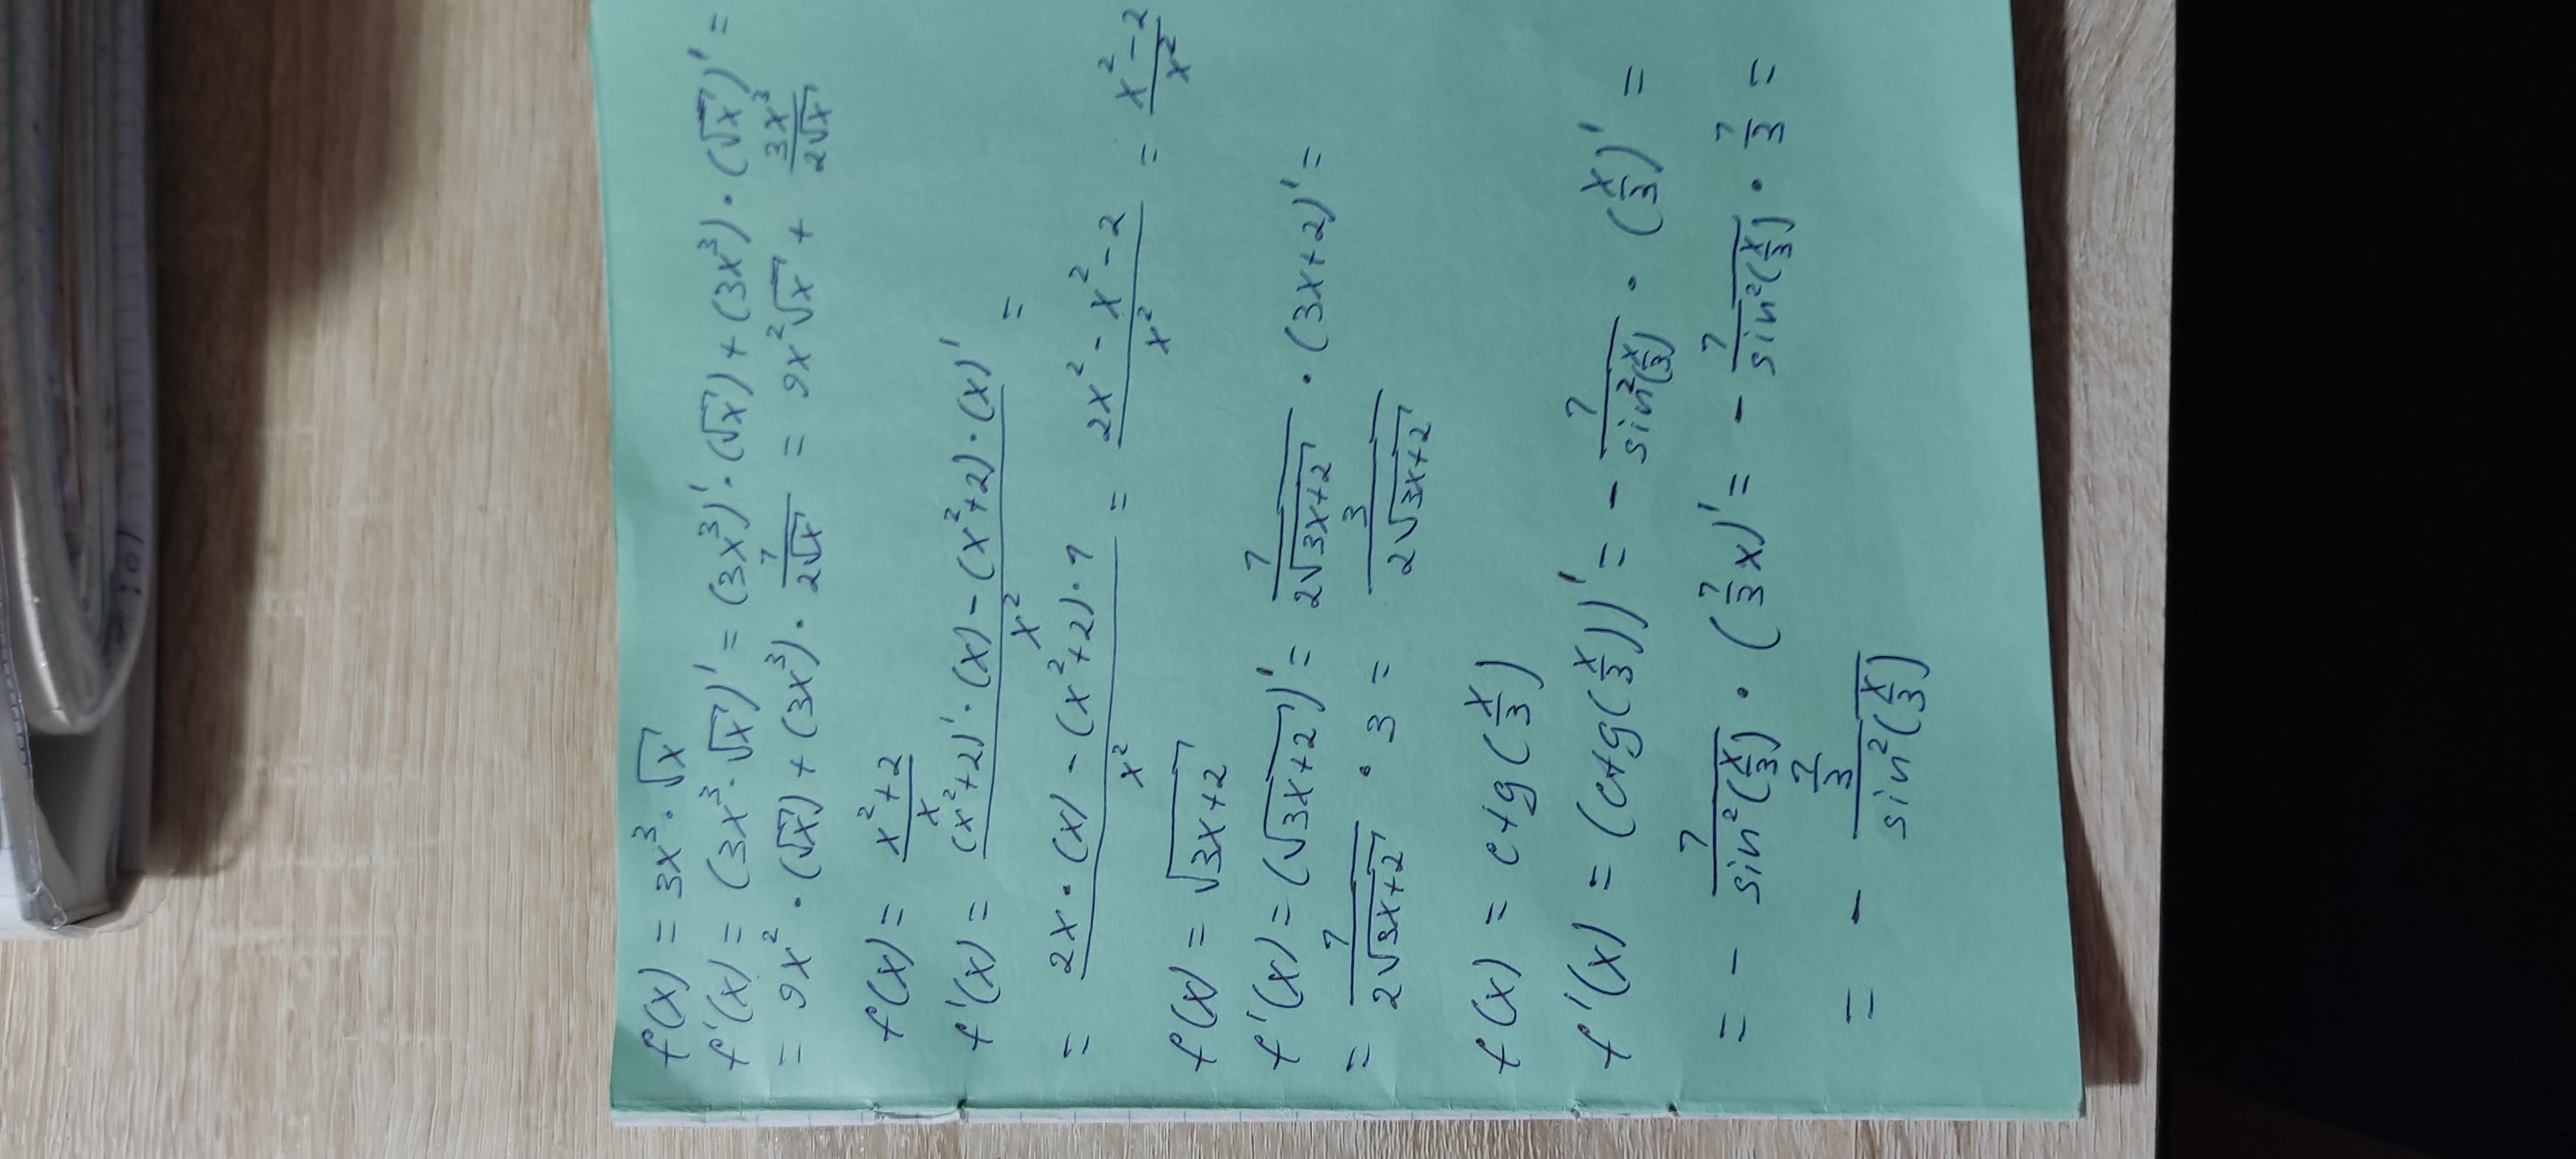 f(x) = 3x³ · √x
f'(x) = (3x³ · √x)' = (3x³)' · (√x) + (3x³) · (√x)' =
= 9x² · (√x) + (3x³) · 1/(2√x) = 9x²√x + 3x³/(2√x)
f(x) = (x²+2)/x
f'(x) = ((x²+2)' · (x) - (x²+2) · (x)')/x² =
= (2x · (x) - (x²+2) · 1)/x² = (2x² - x² - 2)/x² = (x² - 2)/x²
f(x) = √(3x+2)
f'(x) = (√(3x+2))' = 1/(2√(3x+2)) · (3x+2)' =
= 1/(2√(3x+2)) · 3 = 3/(2√(3x+2))
f(x) = ctg(x/3)
f'(x) = (ctg(x/3))' = - 1/sin²(x/3) · (x/3)' =
= - 1/sin²(x/3) · (1/3 x)' = - 1/sin²(x/3) · 1/3 =
= - (1/3)/sin²(x/3)